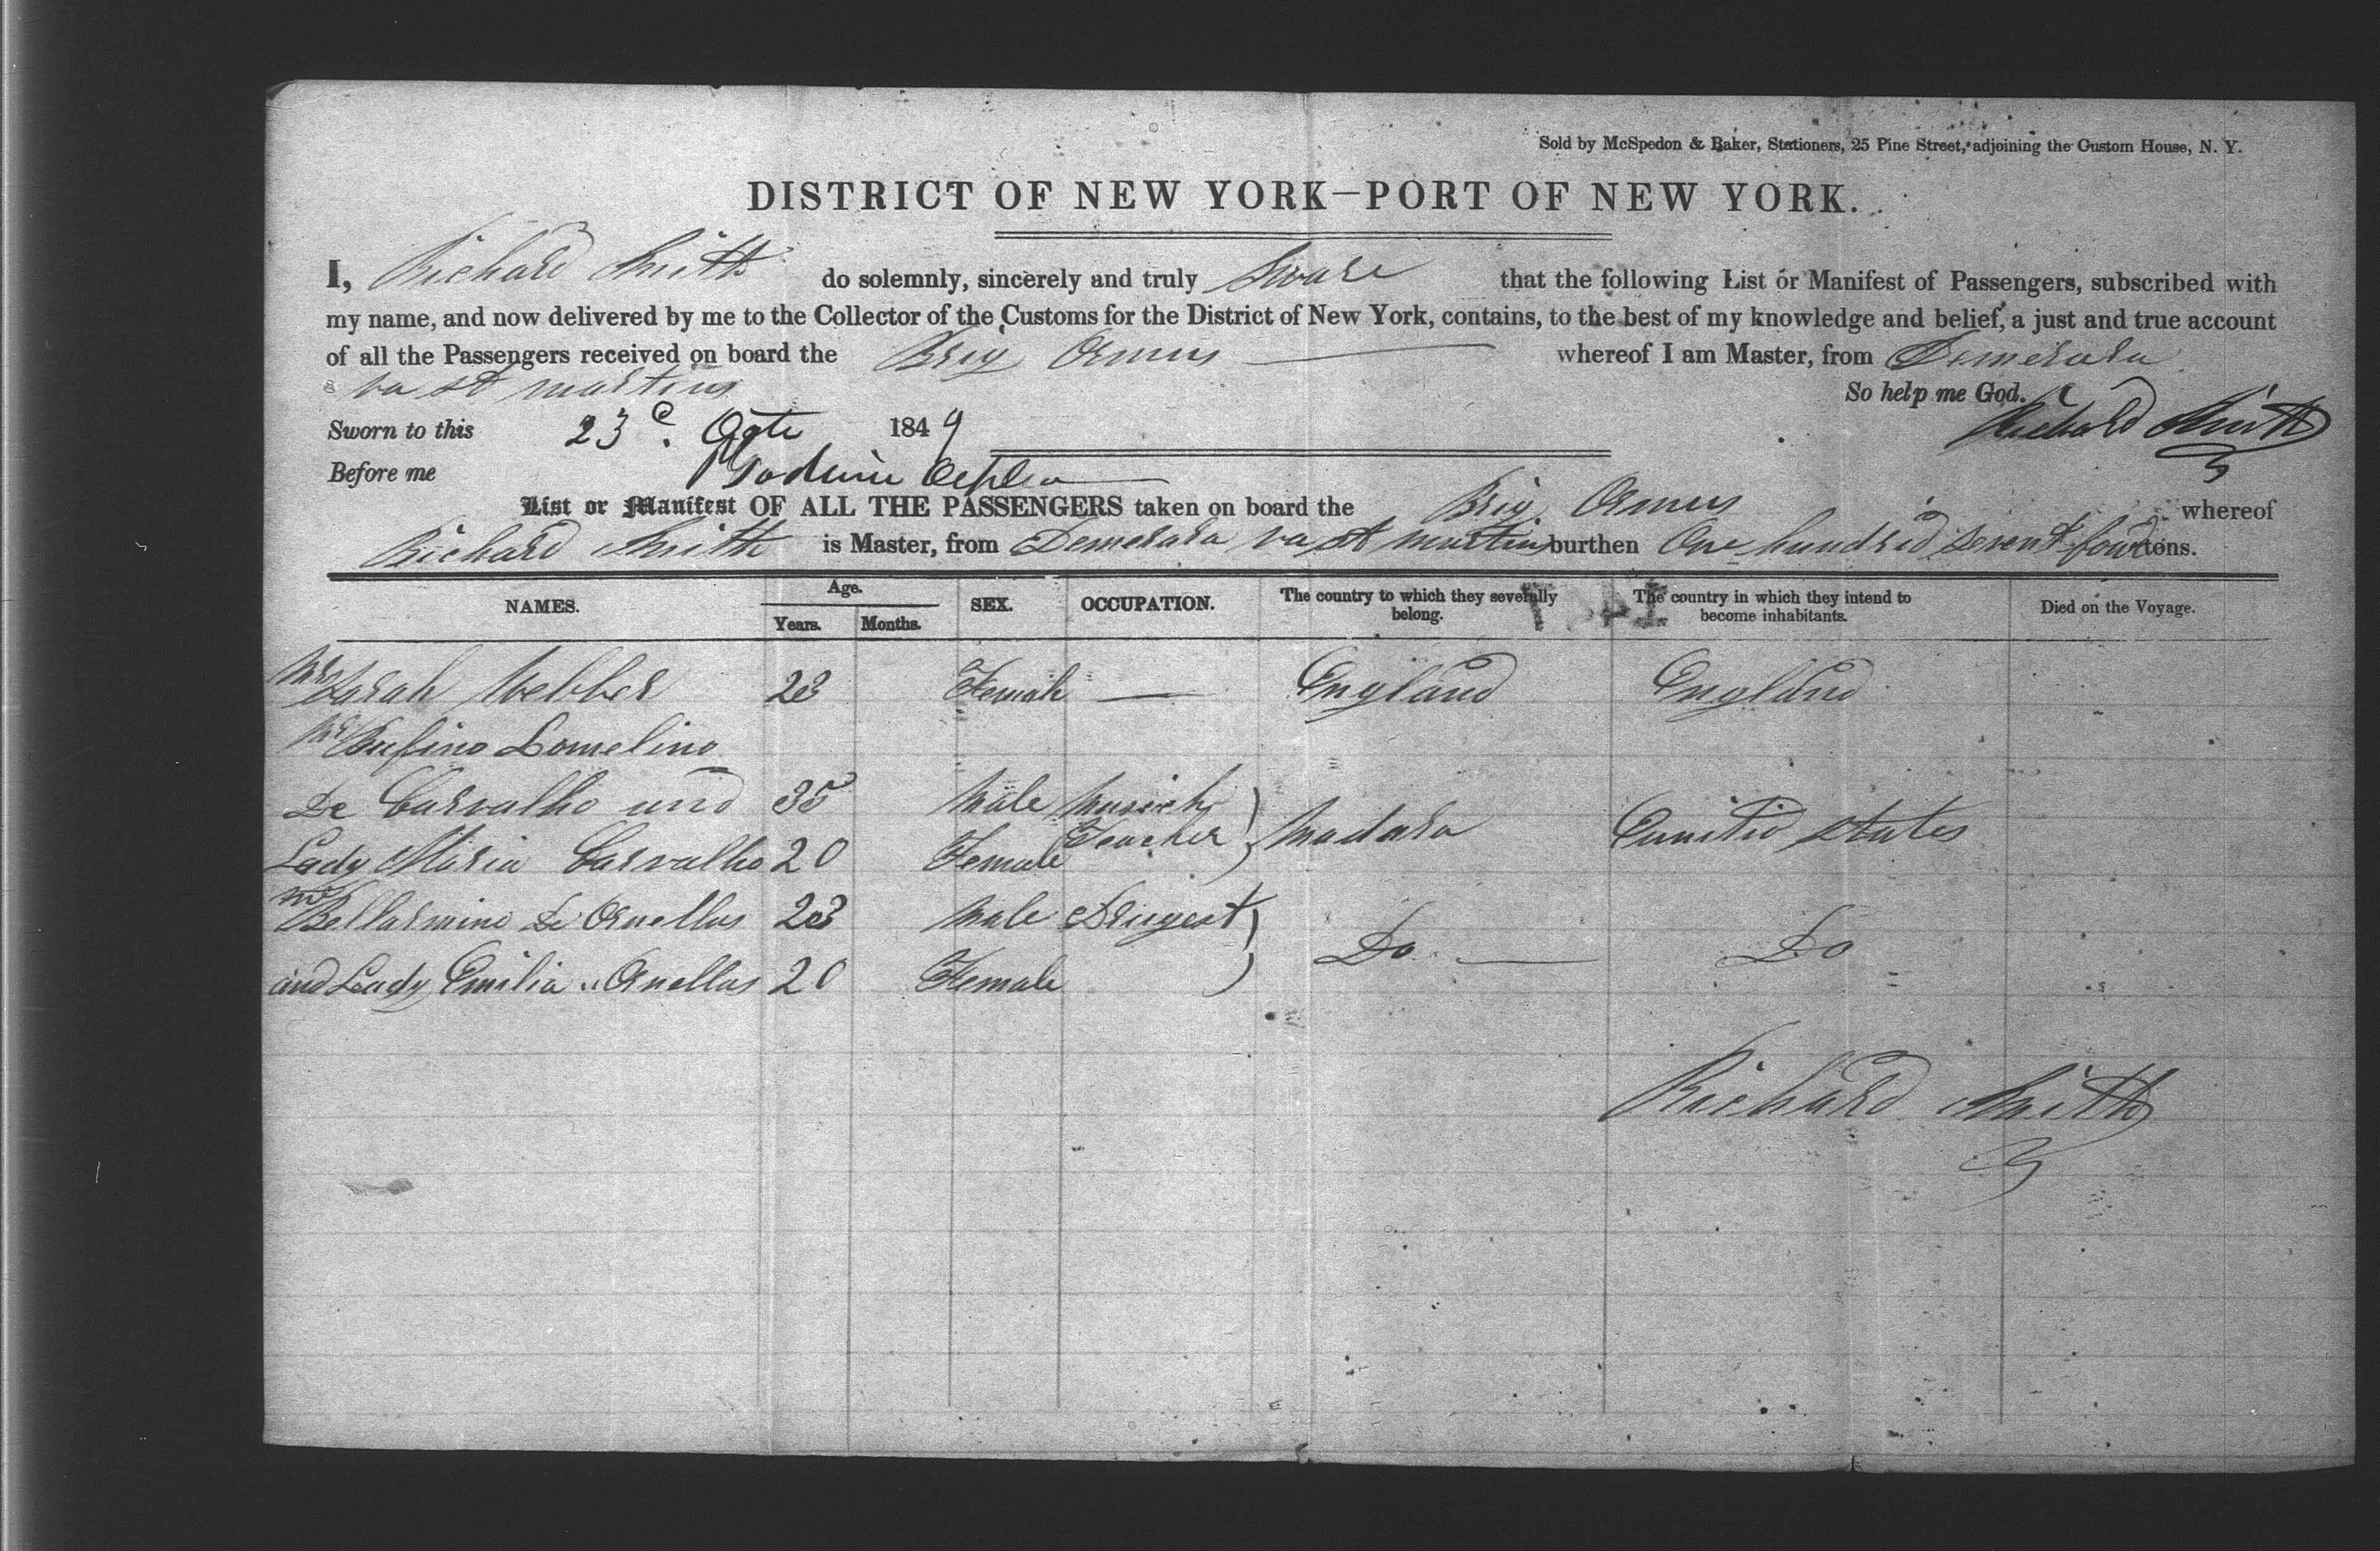 Sold by McSpedon & Baker, Stationers, 25 Pine Street, adjoining the Custom House, N. Y.
DISTRICT OF NEW YORK—PORT OF NEW YORK.
I, Richard Smith do solemnly, sincerely and truly Sware that the following List or Manifest of Passengers, subscribed with
my name, and now delivered by me to the Collector of the Customs for the District of New York, contains, to the best of my knowledge and belief, a just and true account
of all the Passengers received on board the Brig Ormus whereof I am Master, from Demerara
va st martins So help me God.
Sworn to this 23 1849 Richard Smith
Before me
List or Manifest OF ALL THE PASSENGERS taken on board the Brig Ormus whereof
Richard Smith is Master, from Demerara va st martins burthen One hundrid sevent four tons.
NAMES. Age. Years. Months. SEX. OCCUPATION. The country to which they severally belong. The country in which they intend to become inhabitants. Died on the Voyage.
Mrs Sarah Webber 23 Female — England England
Mr Rufino Lomelino
De Carvalho and 35 Male Musick
Teacher Madara Eunitid States
Lady Maria Carvalho 20 Female
Mr Bellarmino De Ornellas 23 Male Drugest
Do — Do
and Lady Emilia " Ornellas 20 Female
Richard Smith